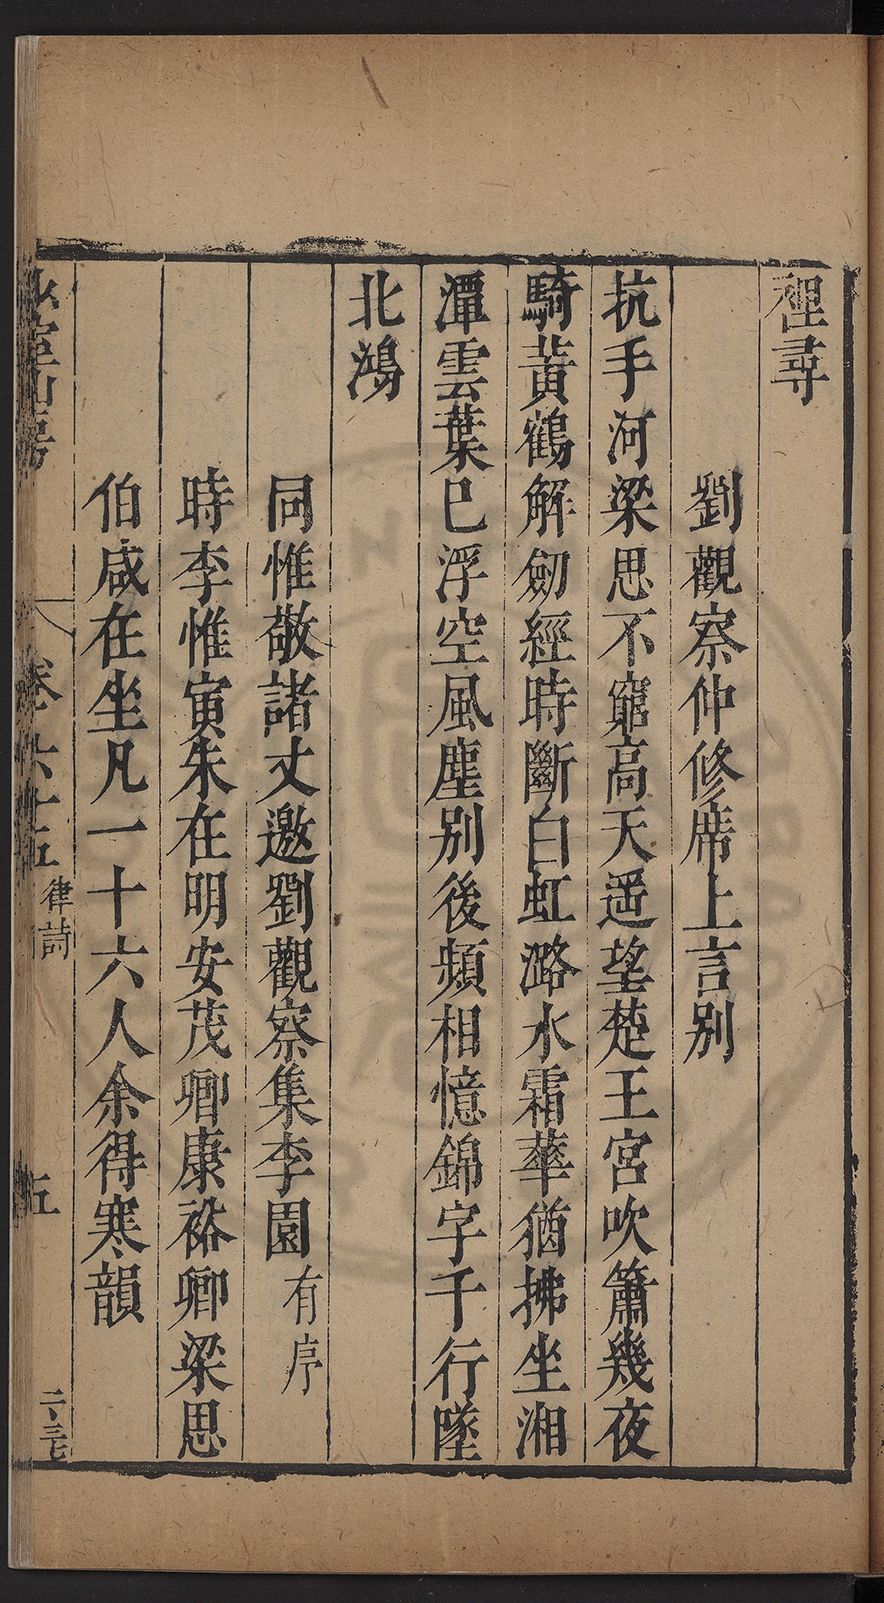 裡尋
劉觀察仲修席上言別
抗手河梁思不窮高天遥望楚王宮吹簫幾夜
騎黃鶴解劒經時斷白虹潞水霜華猶拂坐湘
潭雲葉已浮空風塵別後頻相憶錦字千行墜
北鴻
同惟敬諸丈邀劉觀察集李園有序
時李惟寅朱在明安茂卿康裕卿梁思
伯咸在坐凡一十六人余得寒韻
山房
卷六十五 律詩 五